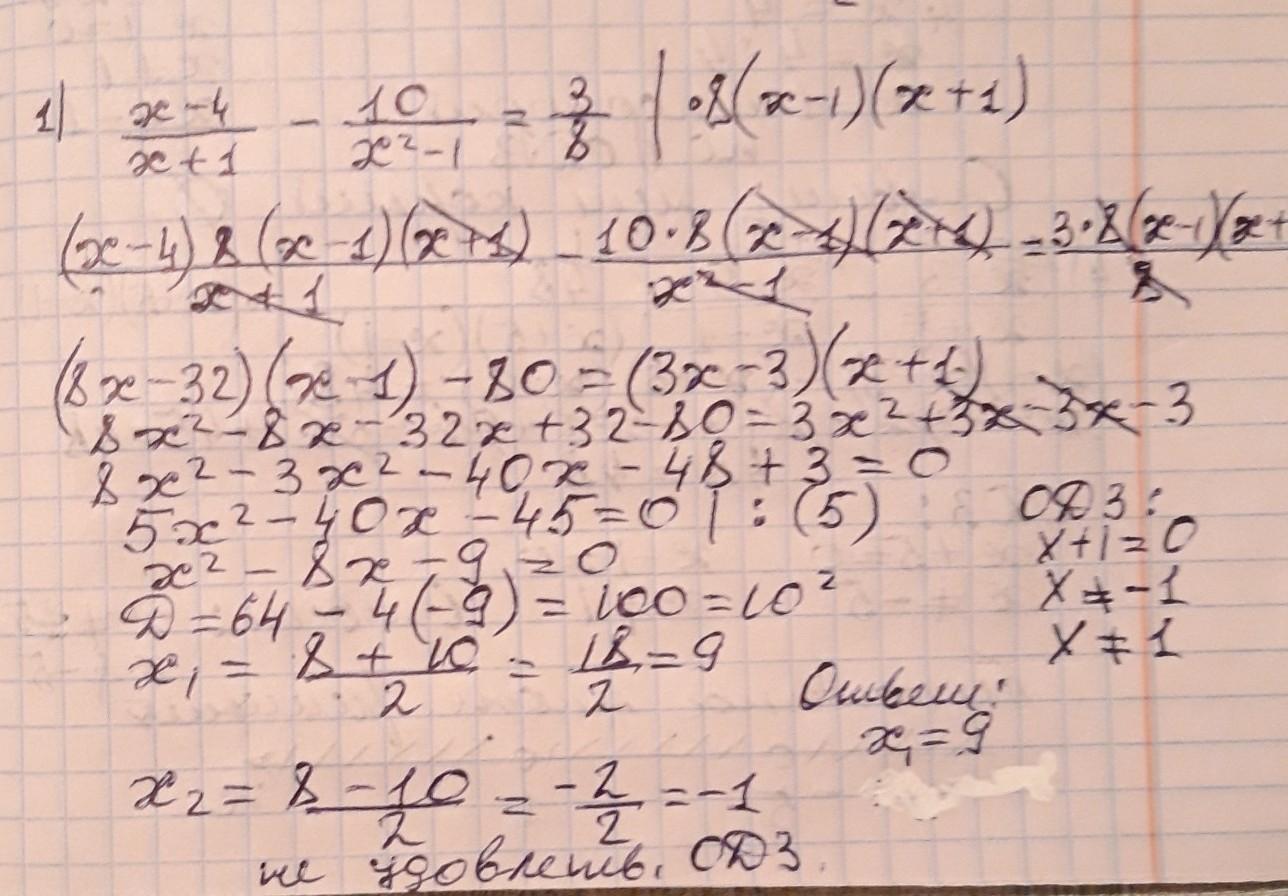 1) (x-4)/(x+1) - 10/(x²-1) = 3/8 | ·8(x-1)(x+1)
(x-4)8(x-1)(x+1)/(x+1) - 10·8(x-1)(x+1)/(x²-1) = 3·8(x-1)(x+/8
(8x-32)(x-1) -80 = (3x-3)(x+1)
8x²-8x-32x+32-80=3x²+3x-3x-3
8x²-3x²-40x-48+3=0
5x²-40x-45=0 | : (5)
x²-8x-9=0
D=64-4(-9)=100=10²
x₁ = (8+10)/2 = 18/2 = 9
x₂ = (8-10)/2 = -2/2 = -1
не удовлетв. ОДЗ.
ОДЗ:
x+1=0
x≠-1
x≠1
Ответ:
x₁=9